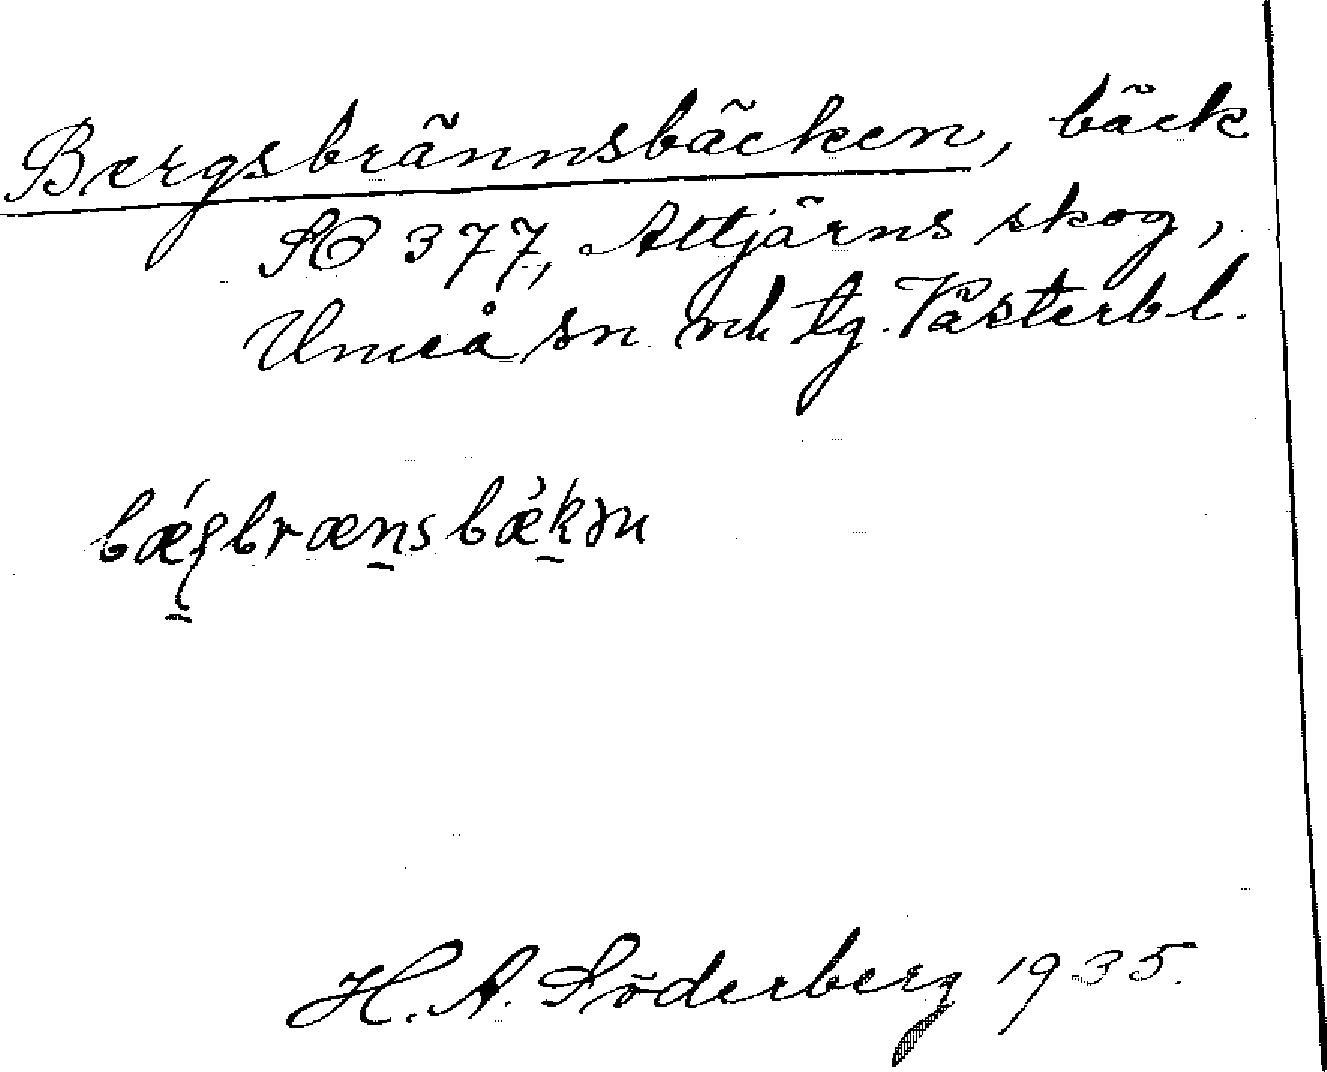 Bergsbrännsbäcken, bäck
SO 377, Attjärns skog,
Umeå sn och tg. Västerbl.
bǽʂbrænsbæ̀kən
H. A. Söderberg 1935.